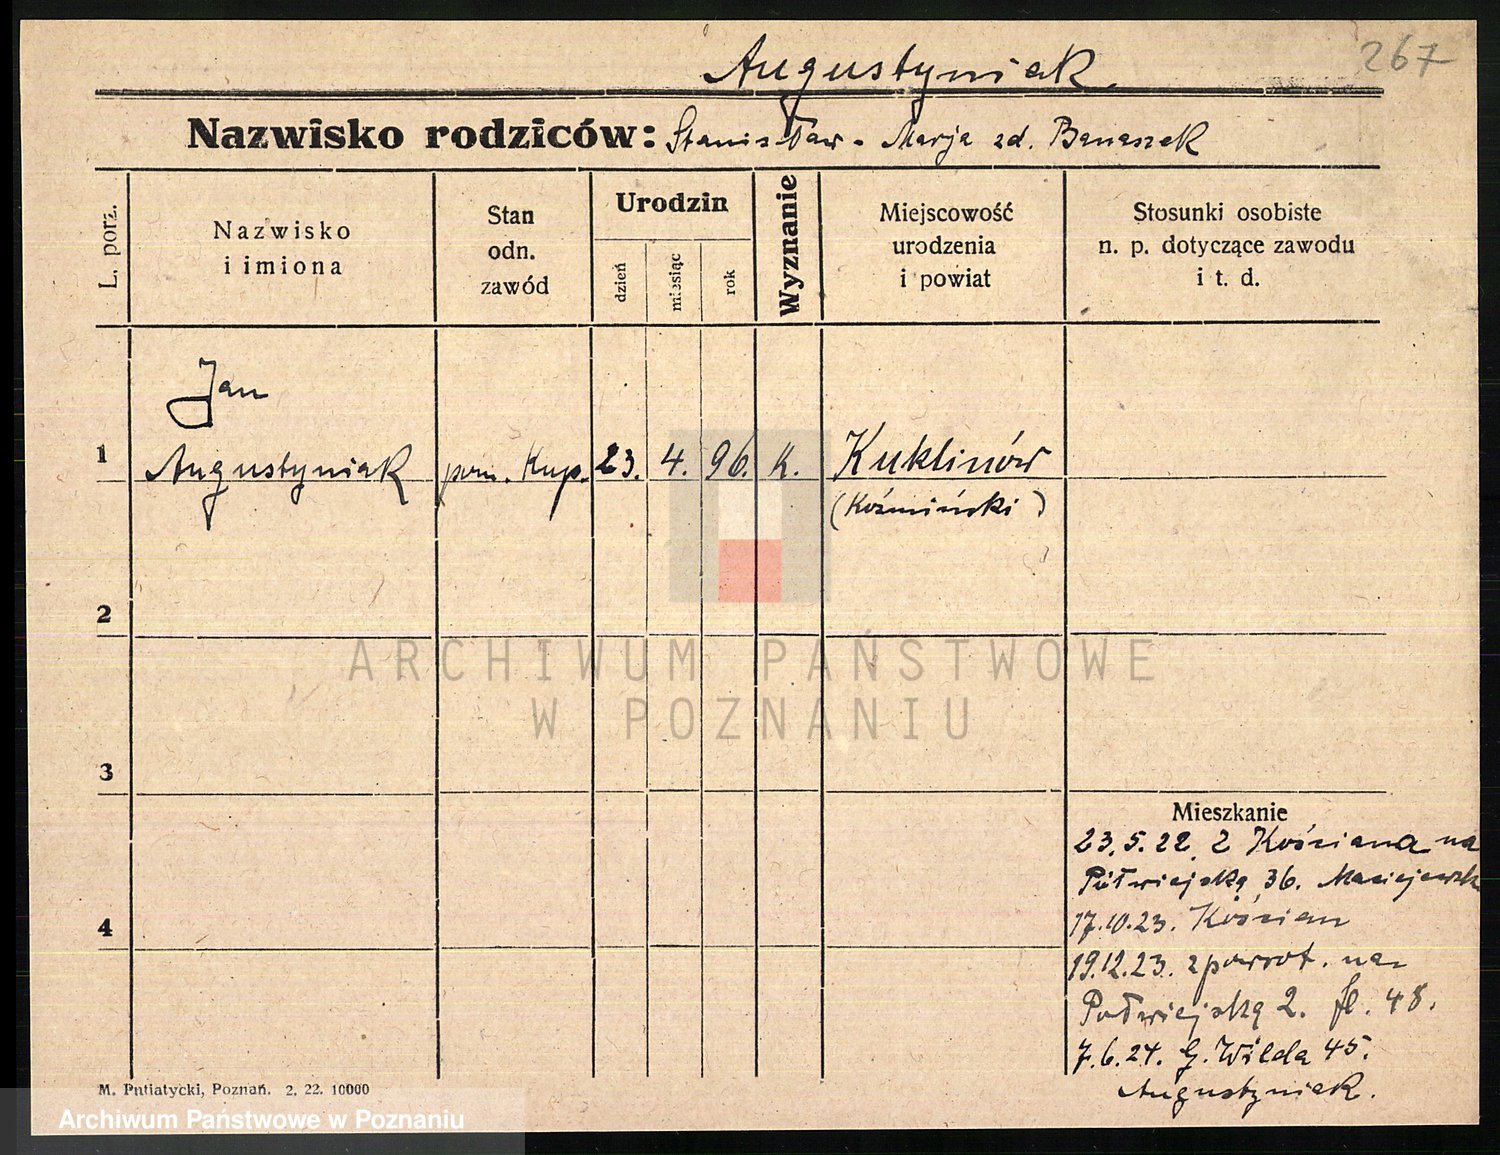 267
Augustyniak.
Nazwisko rodziców: Stanisław - Marja zd. Banaszek
L. porz.
Nazwisko
i imiona
Stan
odn.
zawód
Urodzin
dzień
miesiąc
rok
Wyznanie
Miejscowość
urodzenia
i powiat
Stosunki osobiste
n. p. dotyczące zawodu
i t. d.
Jan
1 Augustyniak pom. Kup. 23. 4. 96. K. Kuklinów
(Koźmiński)
2
3
4
Mieszkanie
23.5.22 z Kościana na
Półwiejską 36. Maciejewsk
17.10.23. Kościan
19.12.23. z powrot. na
Półwiejską 2. fl. 48.
7.6.24. G. Wilda 45.
Augustyniak.
M. Putiatycki, Poznań. 2, 22. 10000
Archiwum Państwowe w Poznaniu
ARCHIWUM PAŃSTWOWE
W POZNANIU